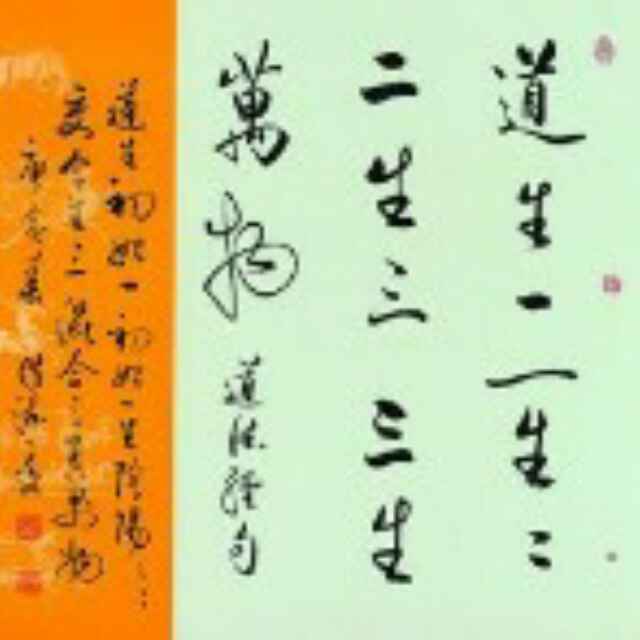 道生一一生二
二生三三生
萬物
道德經句
道生初始一初始一生陰陽
合生三混合三萬物
庚寅